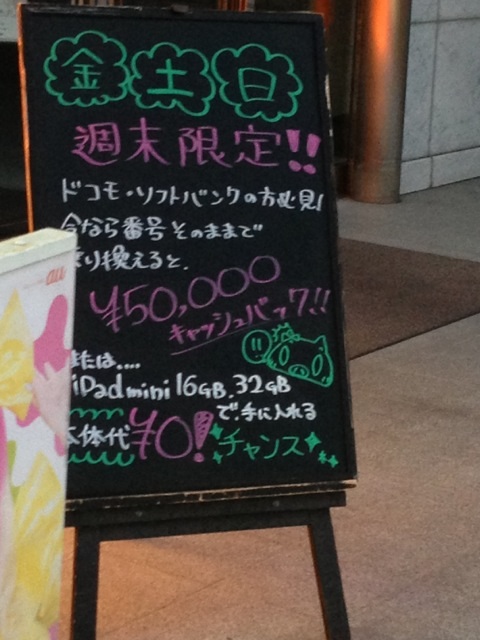 金土日
週末限定!!
ドコモ・ソフトバンクの方必見!
今なら番号そのままで
り換えると、
¥50,000
キャッシュバック!!
または....
iPad mini 16GB、32GB
で、手に入れる
体代¥0!チャンス
au